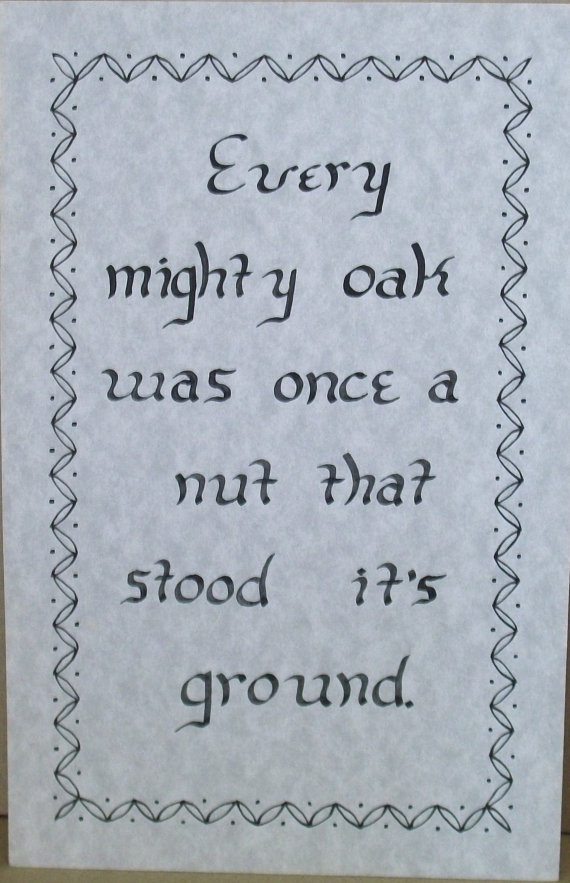 Every
mighty oak
was once a
nut that
stood it's
ground.